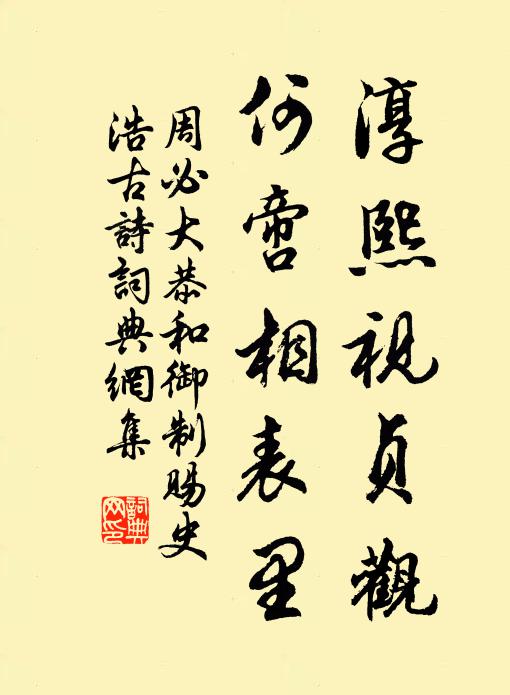 淳熙視貞觀
何啻相表里
周必大恭和御制賜史
浩古詩詞典網集
詞典
网印